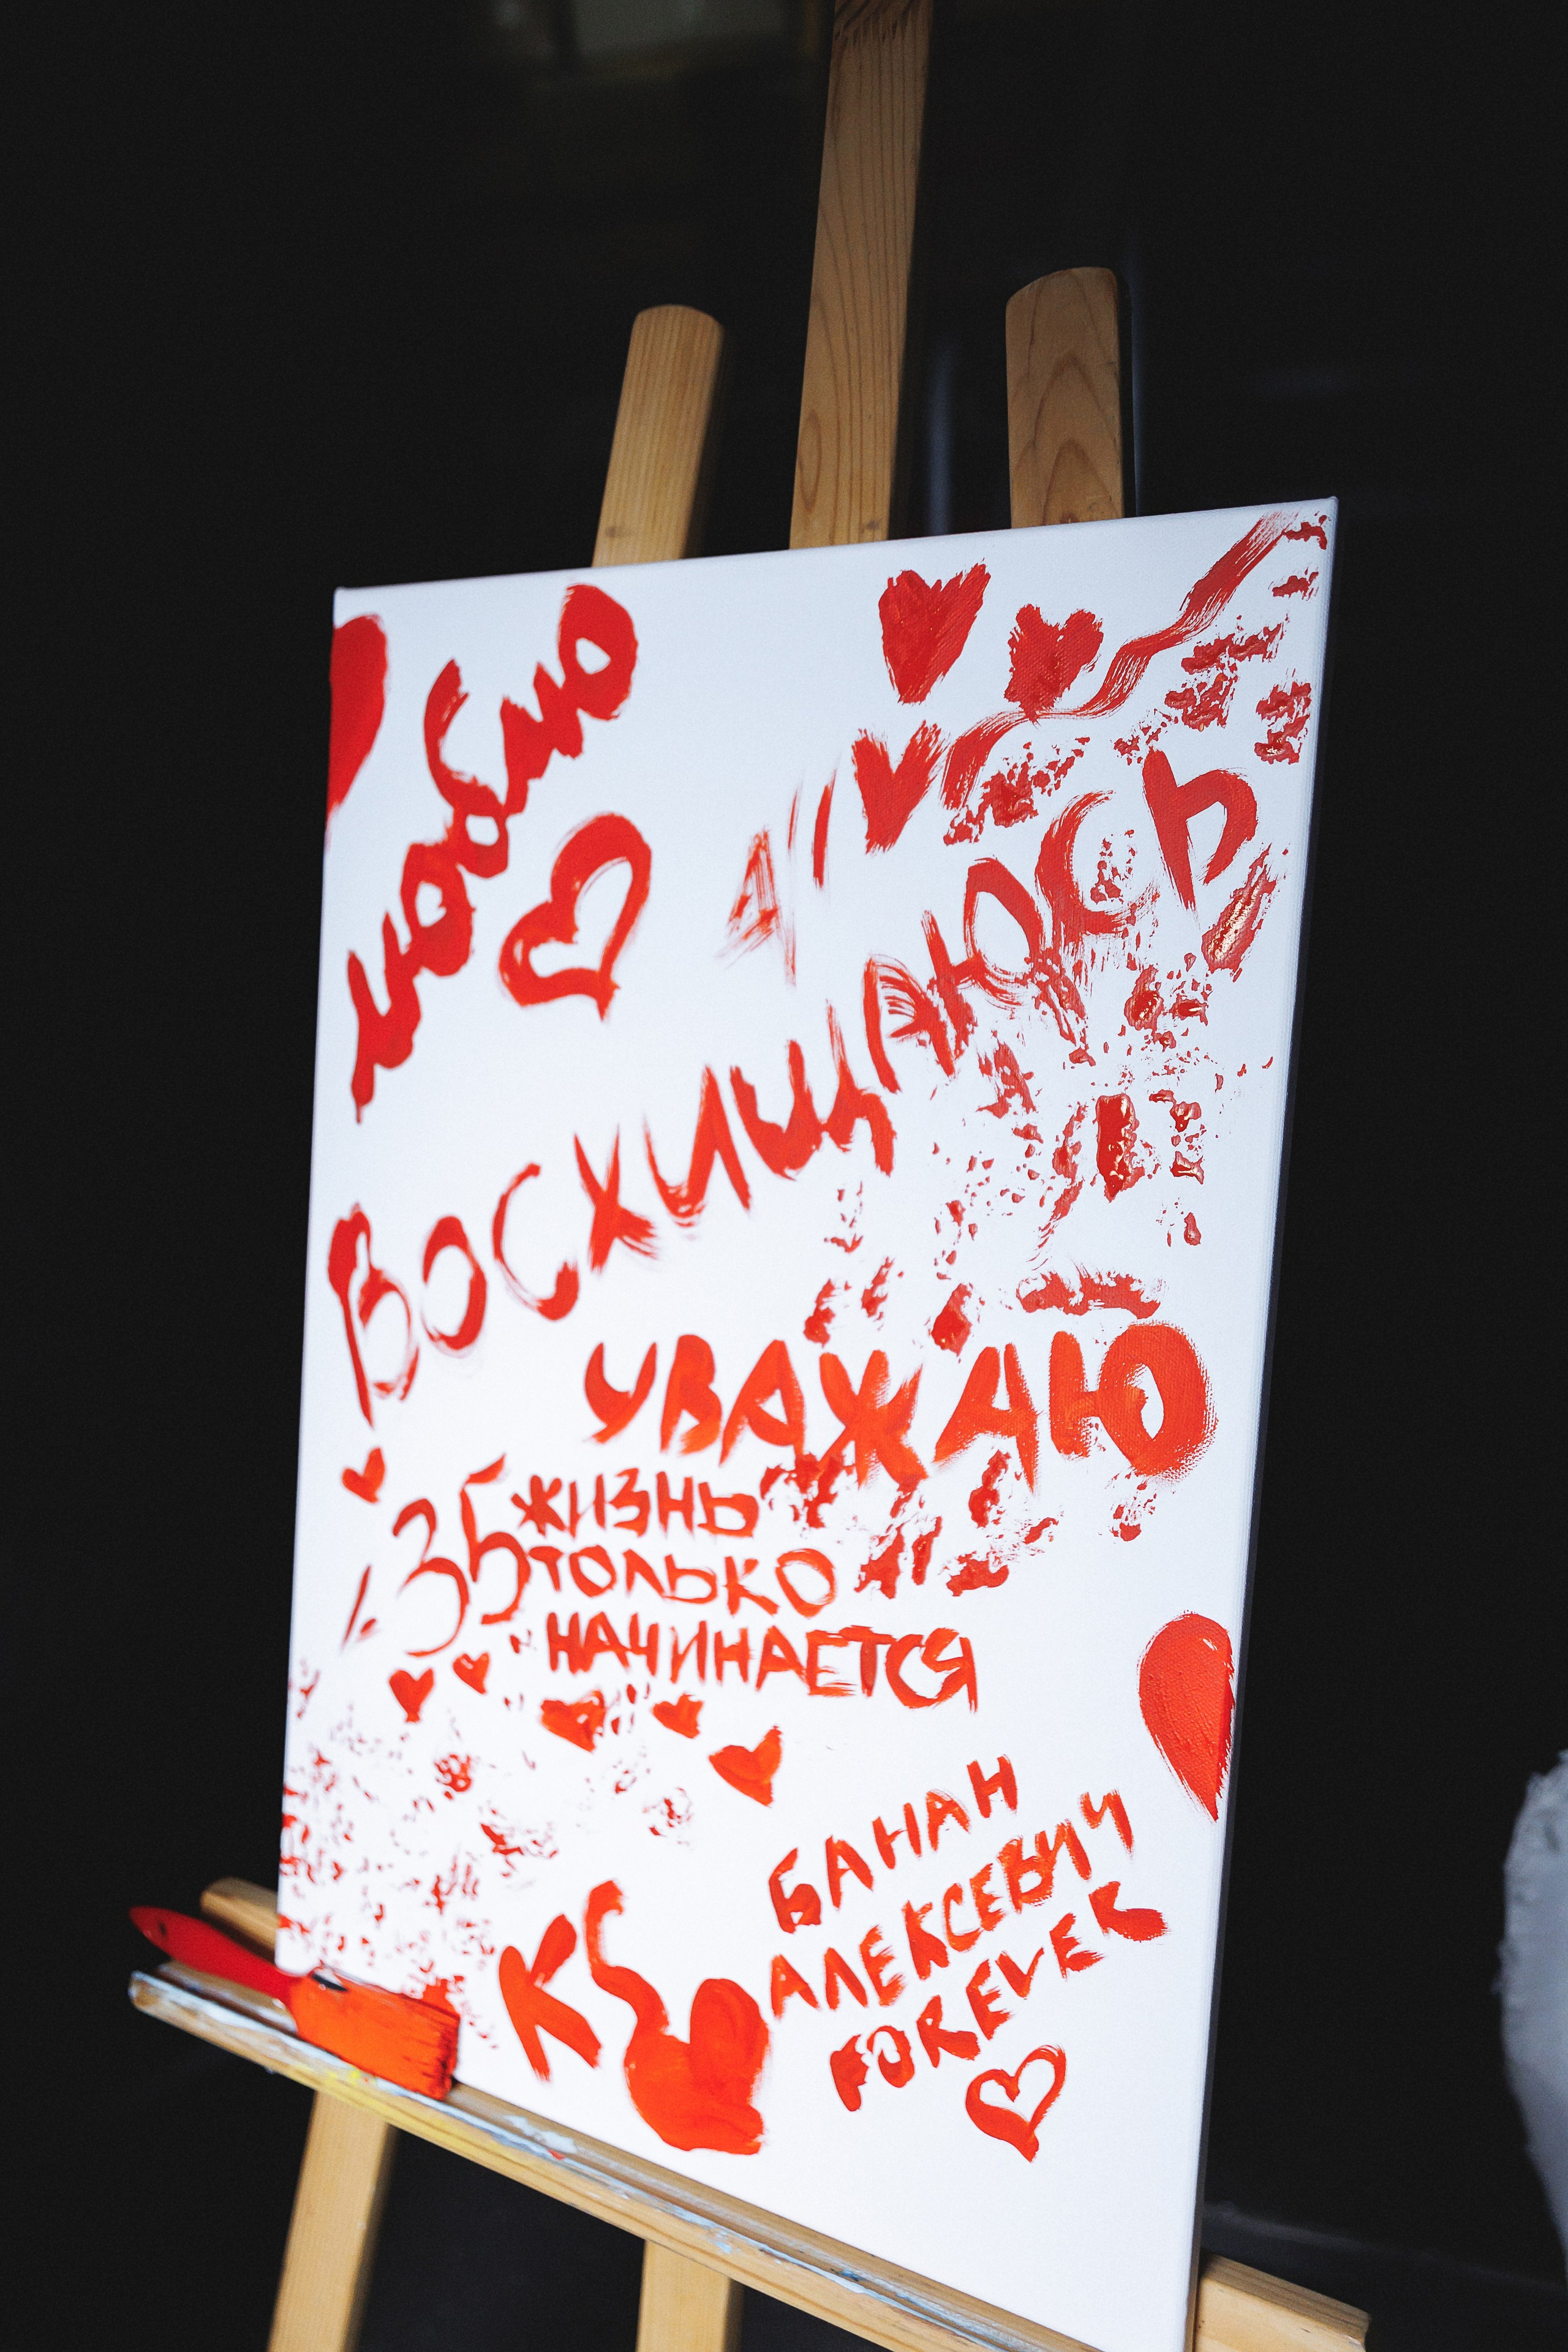 люблю
ВОСХИЩАЮСЬ
УВАЖАЮ
35
ЖИЗНЬ
ТОЛЬКО
НАЧИНАЕТСЯ
БАНАН
АЛЕКСЕВИЧ
FOREVER